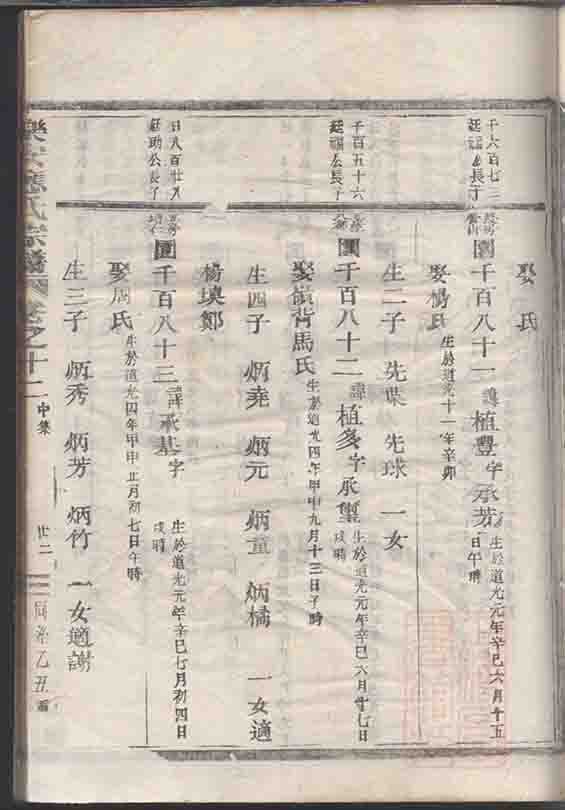 娶 氏
千六百七三
廷福公長子
園千百八十一 諱 植豐 字 承芳 生於道光元年辛巳六月十五
日午時
娶楊氏 生於道光十一年辛卯
生二子 先葉 先球 一女
千百五十六
廷福公長子
園千百八十二 諱 植多 字 承璽 生於道光元年辛巳六月十七日
戌時
娶嶺背馬氏 生於道光四年甲申九月十三日子時
生四子 炳堯 炳元 炳童 炳橘 一女適
楊填鄭
日八百廿八
廷助公長子
園千百八十三 諱 承基 字 生於道光元年辛巳七月初四日
戌時
娶周氏 生於道光四年甲申正月初七日午時
生三子 炳秀 炳芳 炳竹 一女適謝
樂安應氏宗譜 卷之十二 中集 廿二 同治乙丑